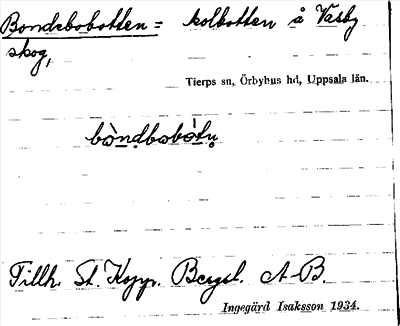 Bondebobotten = kolbotten å Vasby
skog,
Tierps sn, Örbyhus hd, Uppsala län.
bòndbobòtn̥
Tillh. St. Kopp. Bergsl. A-B.
Ingegärd Isaksson 1934.